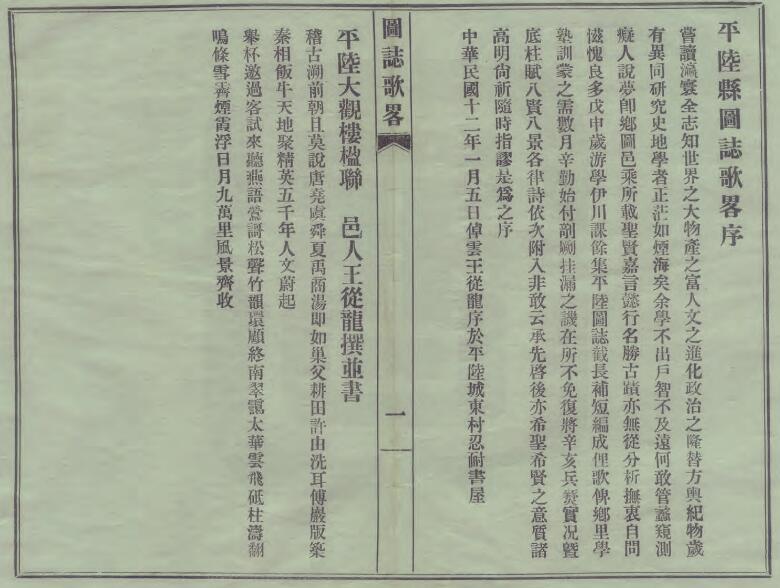 平陸縣圖誌歌畧序
嘗讀瀛寰全志知世界之大物產之富人文之進化政治之隆替方輿紀物歲
有異同研究史地學者正茫如煙海矣余學不出戶智不及遠何敢管蠡窺測
癡人說夢卽鄉圖邑乘所載聖賢嘉言懿行名勝古蹟亦無從分析撫衷自問
滋愧良多戊申歲游學伊川課餘集平陸圖誌截長補短編成俚歌俾鄉里學
塾訓蒙之需數月辛勤始付剞劂挂漏之譏在所不免復將辛亥兵燹實况曁
底柱賦八賢八景各律詩依次附入非敢云承先啓後亦希聖希賢之意質諸
高明尙祈隨時指謬是爲之序
中華民國十二年一月五日倬雲王從龍序於平陸城東村忍耐書屋
圖誌歌畧
一
平陸大觀樓楹聯　邑人王從龍撰並書
稽古溯前朝且莫說唐堯虞舜夏禹商湯即如巢父耕田許由洗耳傅巖版築
秦相飯牛天地聚精英五千年人文蔚起
舉杯邀過客試來聽燕語鶯謌松聲竹韻環顧終南翠靄太華雲飛砥柱濤翻
鳴條雪霽煙霞浮日月九萬里風景齊收